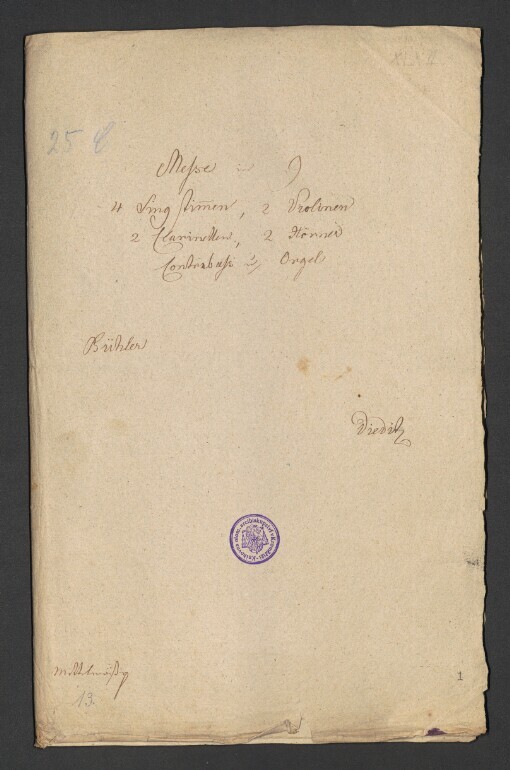 25
Messe in
4 Singstimmen, 2 Violinen
2 Clarinetten, 2 Hörner
Contrabass u. Orgel
Bühler
Dieditz
Mittelmäßig
13.
1